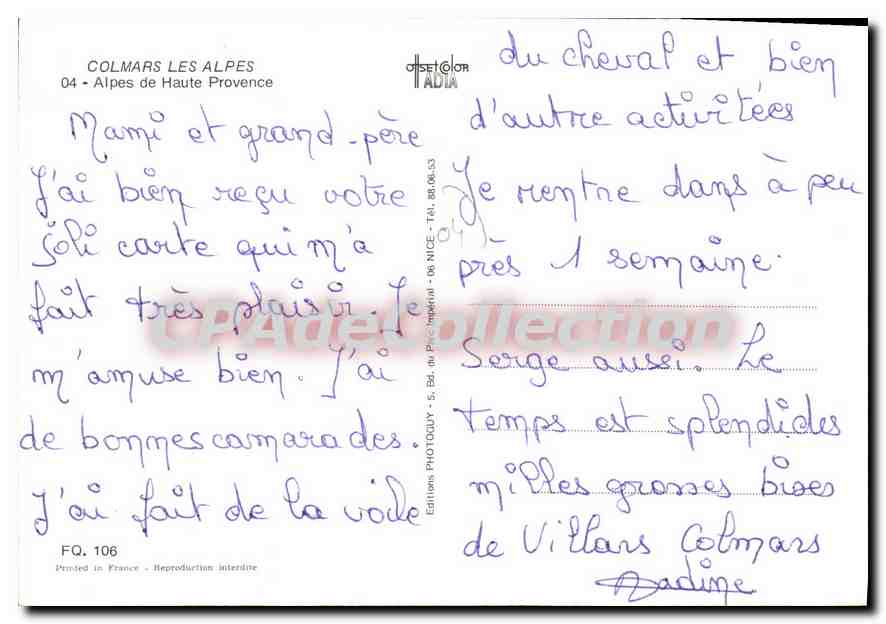 COLMARS LES ALPES
04 - Alpes de Haute Provence
OffSETCOLOR
IADIA
Mami et grand-père
J'ai bien reçu votre
joli carte qui m'a
fait très plaisir. Je
m'amuse bien. J'ai
de bonnes camarades.
J'ai fait de la voile
FQ. 106
Printed in France - Reproduction interdite
Editions PHOTOGUY - 5, Bd. du Parc Impérial - 06 NICE - Tél. 88.06.53
04
du cheval et bien
d'autre activitées
Je rentre dans à peu
près 1 semaine.
Serge aussi. Le
temps est splendides
milles grosses bises
de Villars Colmars
Nadine
CPAdeCollection